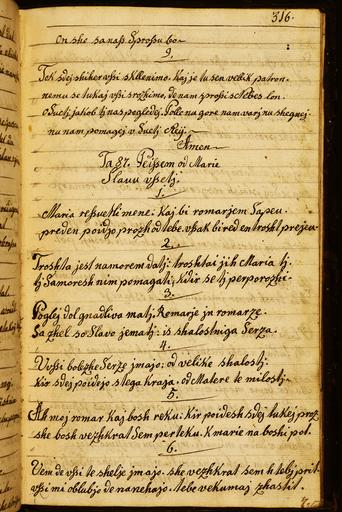 316.
On she sa nass
9.
Tek sdej skiher vssi sklenimo. Kaj je tu sen vellik patron.
nemu se tukaj vssi srozhimo, de nam pross is Nebes lon.
Polle na gore nam varj nu shegnej.
nu nam pomagej
Amen
Ta 87. Peissem od Marie
Slavu vssetj
1.
Maria resvetli mene. Kaj bi romarjem sapeu.
preden poidjo prozh od tebe. vsak bi red en trosht prejeu.
2.
Troshta jest na morem datj: troshtai jih Maria tj.
tj samoresh nim pomagati. Kdir se tj perporozhi.
3.
Poglej dol gnadliva matj. Remarje jn romarze.
Sa zhel so Slavo jematj: is shalostniga Serza.
4.
Vvssi bolezhe Serze jmajo: od velike shalostj.
Kir sdej poidejo s tega kraja. od Matere te milostj.
5.
moj romar kaj bosh reku. Kir poidesh sdej tukej prozh
she bosh vezhkrat sem perteku. K marie na boshj pot.
6.
Vem de vssi te shelje jmajo. she vezhkrat sem k tebj prit.
vssi mi oblubjo de nanehajo. tebe vekumaj zhastit.
7.